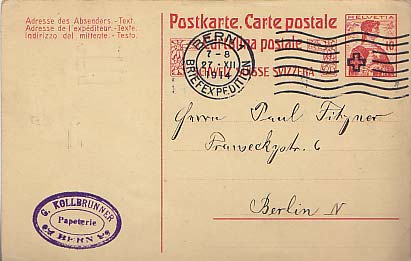 Adresse des Absenders.-Text.
Adresse de l'expéditeur.-Texte.
Indirizzo del mittente.-Testo.
Postkarte. Carte postale
Cartolina postale
SVIZZERA
HELVETIA
10
BERN 1
7-8
27·XII
1914
BRIEFEXPEDITION
Herrn Paul Fitzner
6
Berlin N
G. KOLLBRUNNER
Papeterie
BERN